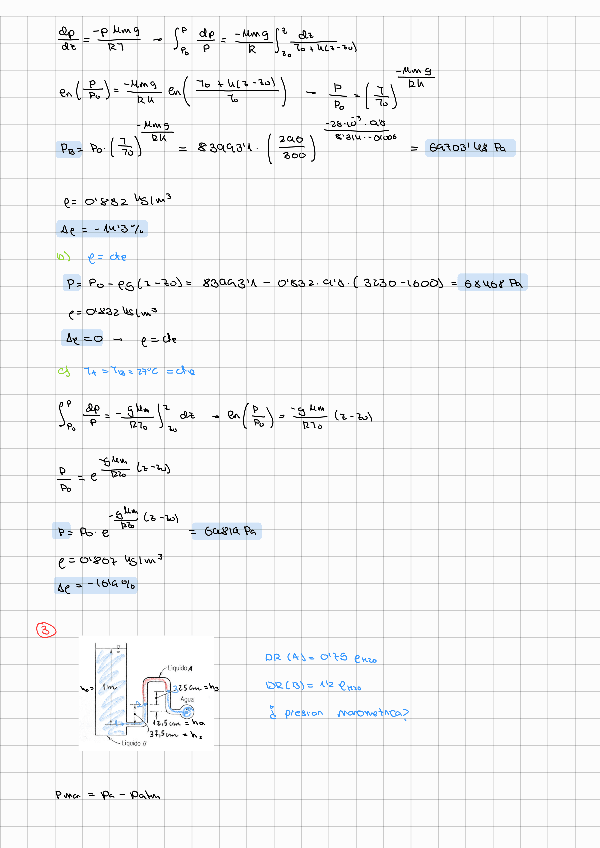 dp/dz = -p Mm g / RT → ∫p₀^p dp/p = -Mm g / R ∫z₀^z dz / T₀ + k(z-z₀)
ln(p/p₀) = -Mm g / Rk ln(T₀ + k(z-z₀) / T₀) → p/p₀ = (T/T₀)^(-Mm g / Rk)
PB = P₀ · (T/T₀)^(-Mm g / Rk) = 83993'1 · (290/300) = 69703'48 Pa
ρ =
Δρ = -14'3%
b) ρ = cte
P = P₀ - ρg(z-z₀) = 83993'1 - 0'832 · 9'8 · (3230-1600) = 68468 Pa
ρ = 0'832 kg/m³
Δρ = 0 → ρ = cte
c) TA = TB = 27°C = cte
∫p₀^p dp/p = -g Mm / RT₀ ]z₀^z dz → ln(p/p₀) = -g Mm / RT₀ (z-z₀)
p/p₀ = e^(-g Mm / RT₀ (z-z₀))
P = P₀ · e^(-g Mm / RT₀ (z-z₀)) =
ρ = 0'807 kg/m³
Δρ =
3
Líquido A
h₀ = 1m
22,5 cm = h₃
Agua
12,5 cm =
37,5 cm =
Líquido B
DR (A) = 0'75 ρH₂O
DR (B) = 1'2 ρH₂O
¿ presion manometrica?
Pman = Pa - Patm